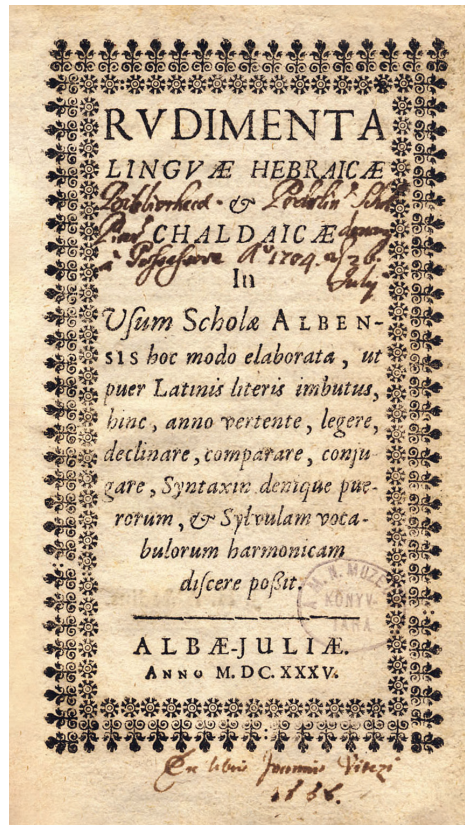 RVDIMENTA
LINGVÆ HEBRAICÆ
&
CHALDAICÆ
Aº 1704. 26.
July
In
Uſum Scholæ ALBEN-
SIS hoc modo elaborata, ut
puer Latinis literis imbutus,
hinc, anno vertente, legere,
declinare, comparare, conju-
gare, Syntaxin denique pue-
rorum, & Sylvulam voca-
bulorum harmonicam
diſcere poßit.
M. N. MUZE
KÖNYV-
TÁRA
ALBÆ-JULIÆ.
ANNO M.DC.XXXV.
Ex libris Joannis